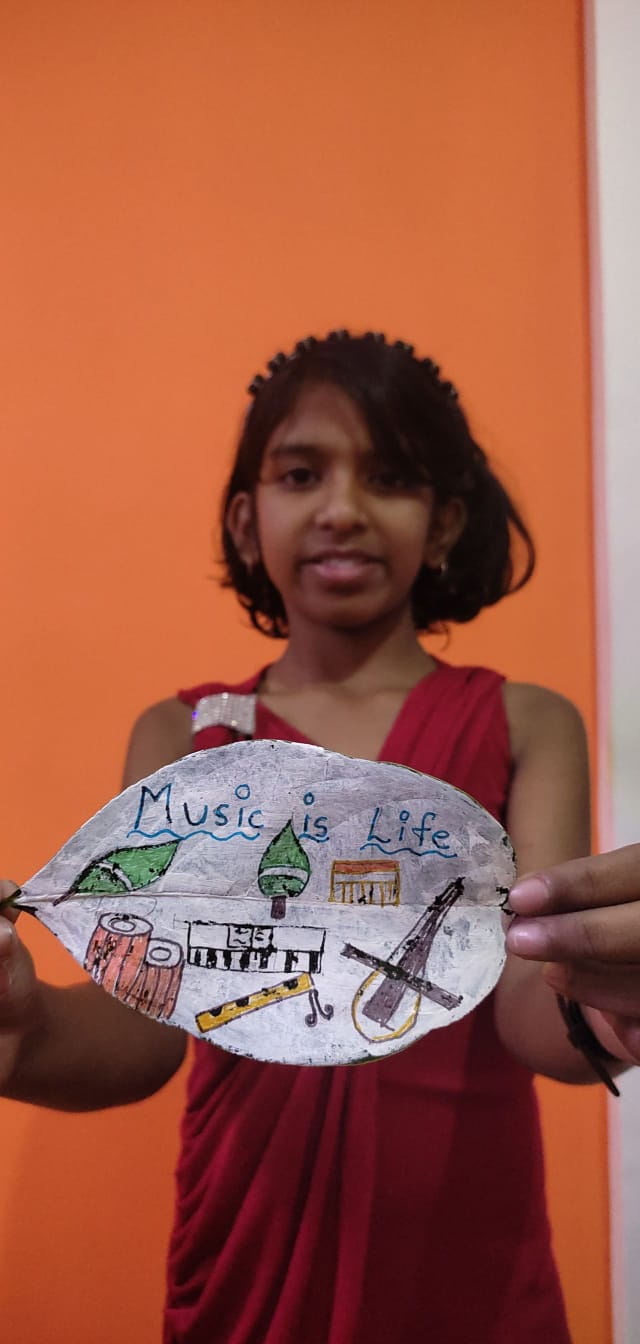 Music is Life